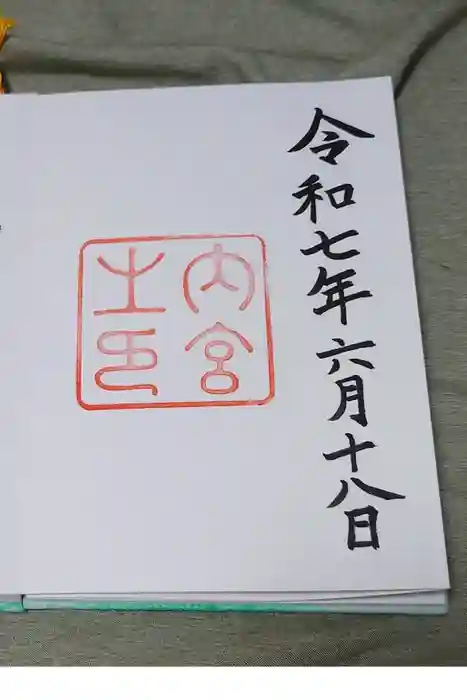 令和七年六月十八日
内宮
之印